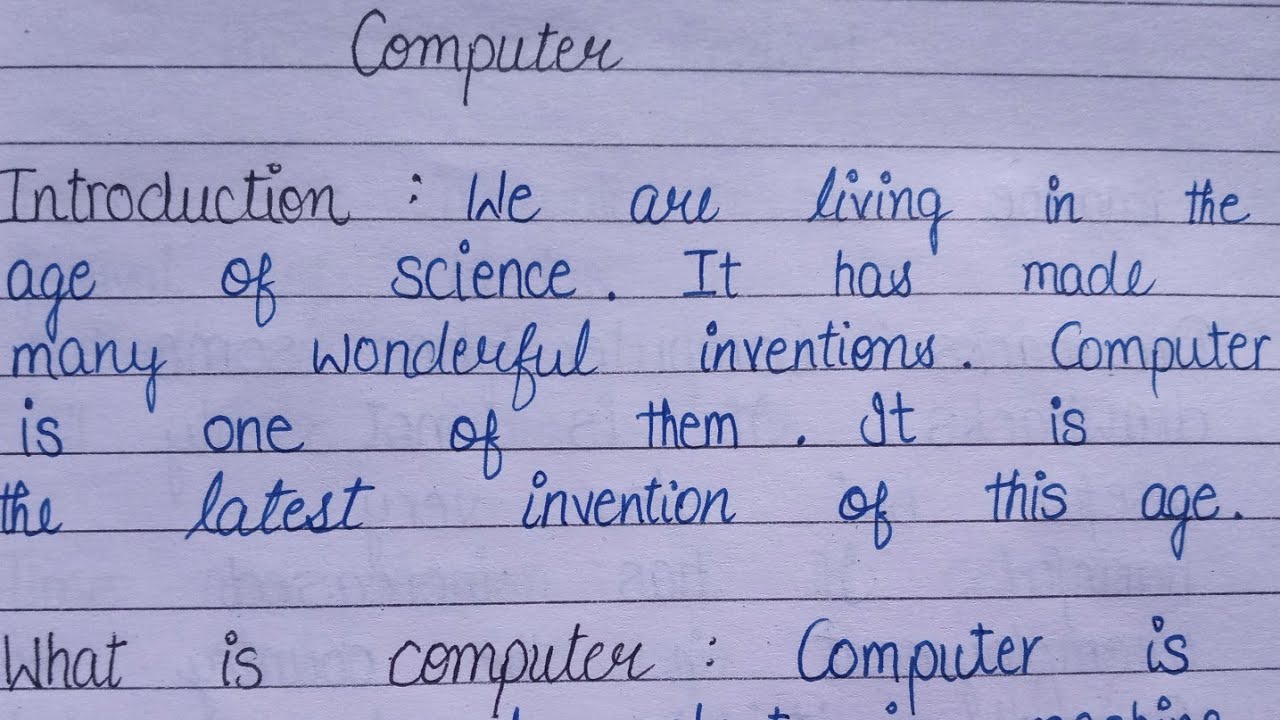 Computer
Introduction : We are living in the
age of science. It has made
many wonderful inventions. Computer
is one of them. It is
the latest invention of this age.
What is computer : Computer is